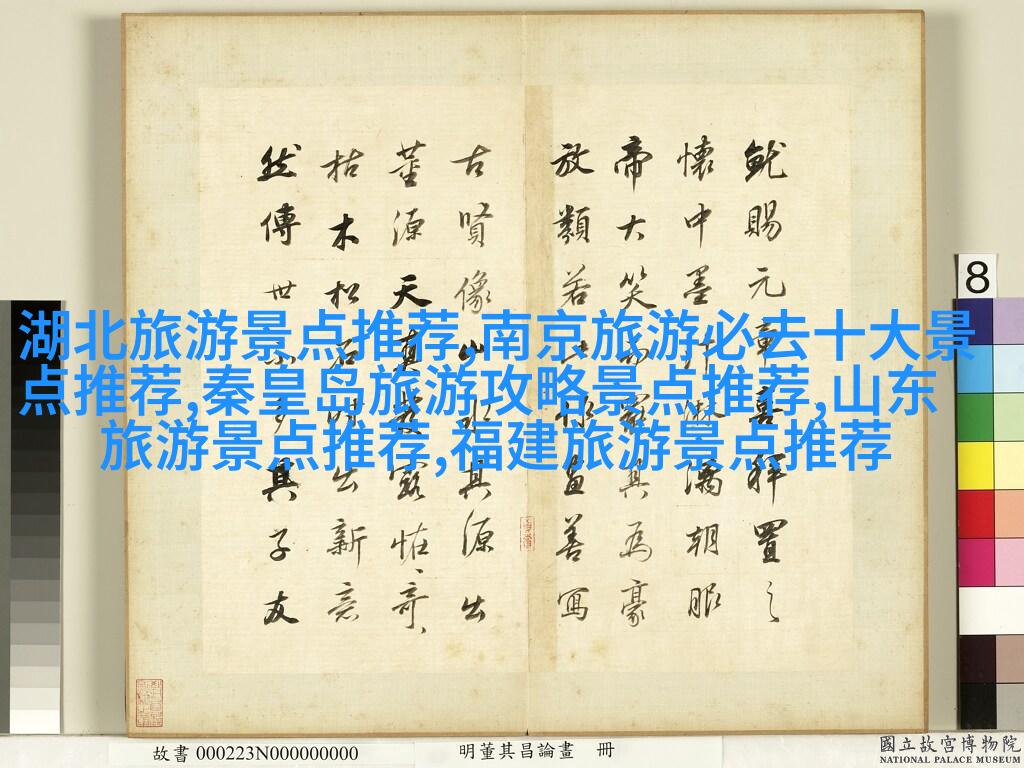 湖北旅游景点推荐,南京旅游必去十大景
点推荐,秦皇岛旅游攻略景点推荐,山东
旅游景点推荐,福建旅游景点推荐
賜元章喜拜置之
懷中墨汁淋漓朝服
帝大笑而罷其為豪
放類若此畫善寫
古賢像山水其源出
董源天真發露怪、奇、
枯木松石時出新意
然傳世不多其子友
8
故書 000223N000000000
明董其昌論畫 冊
國立故宮博物院
NATIONAL PALACE MUSEUM